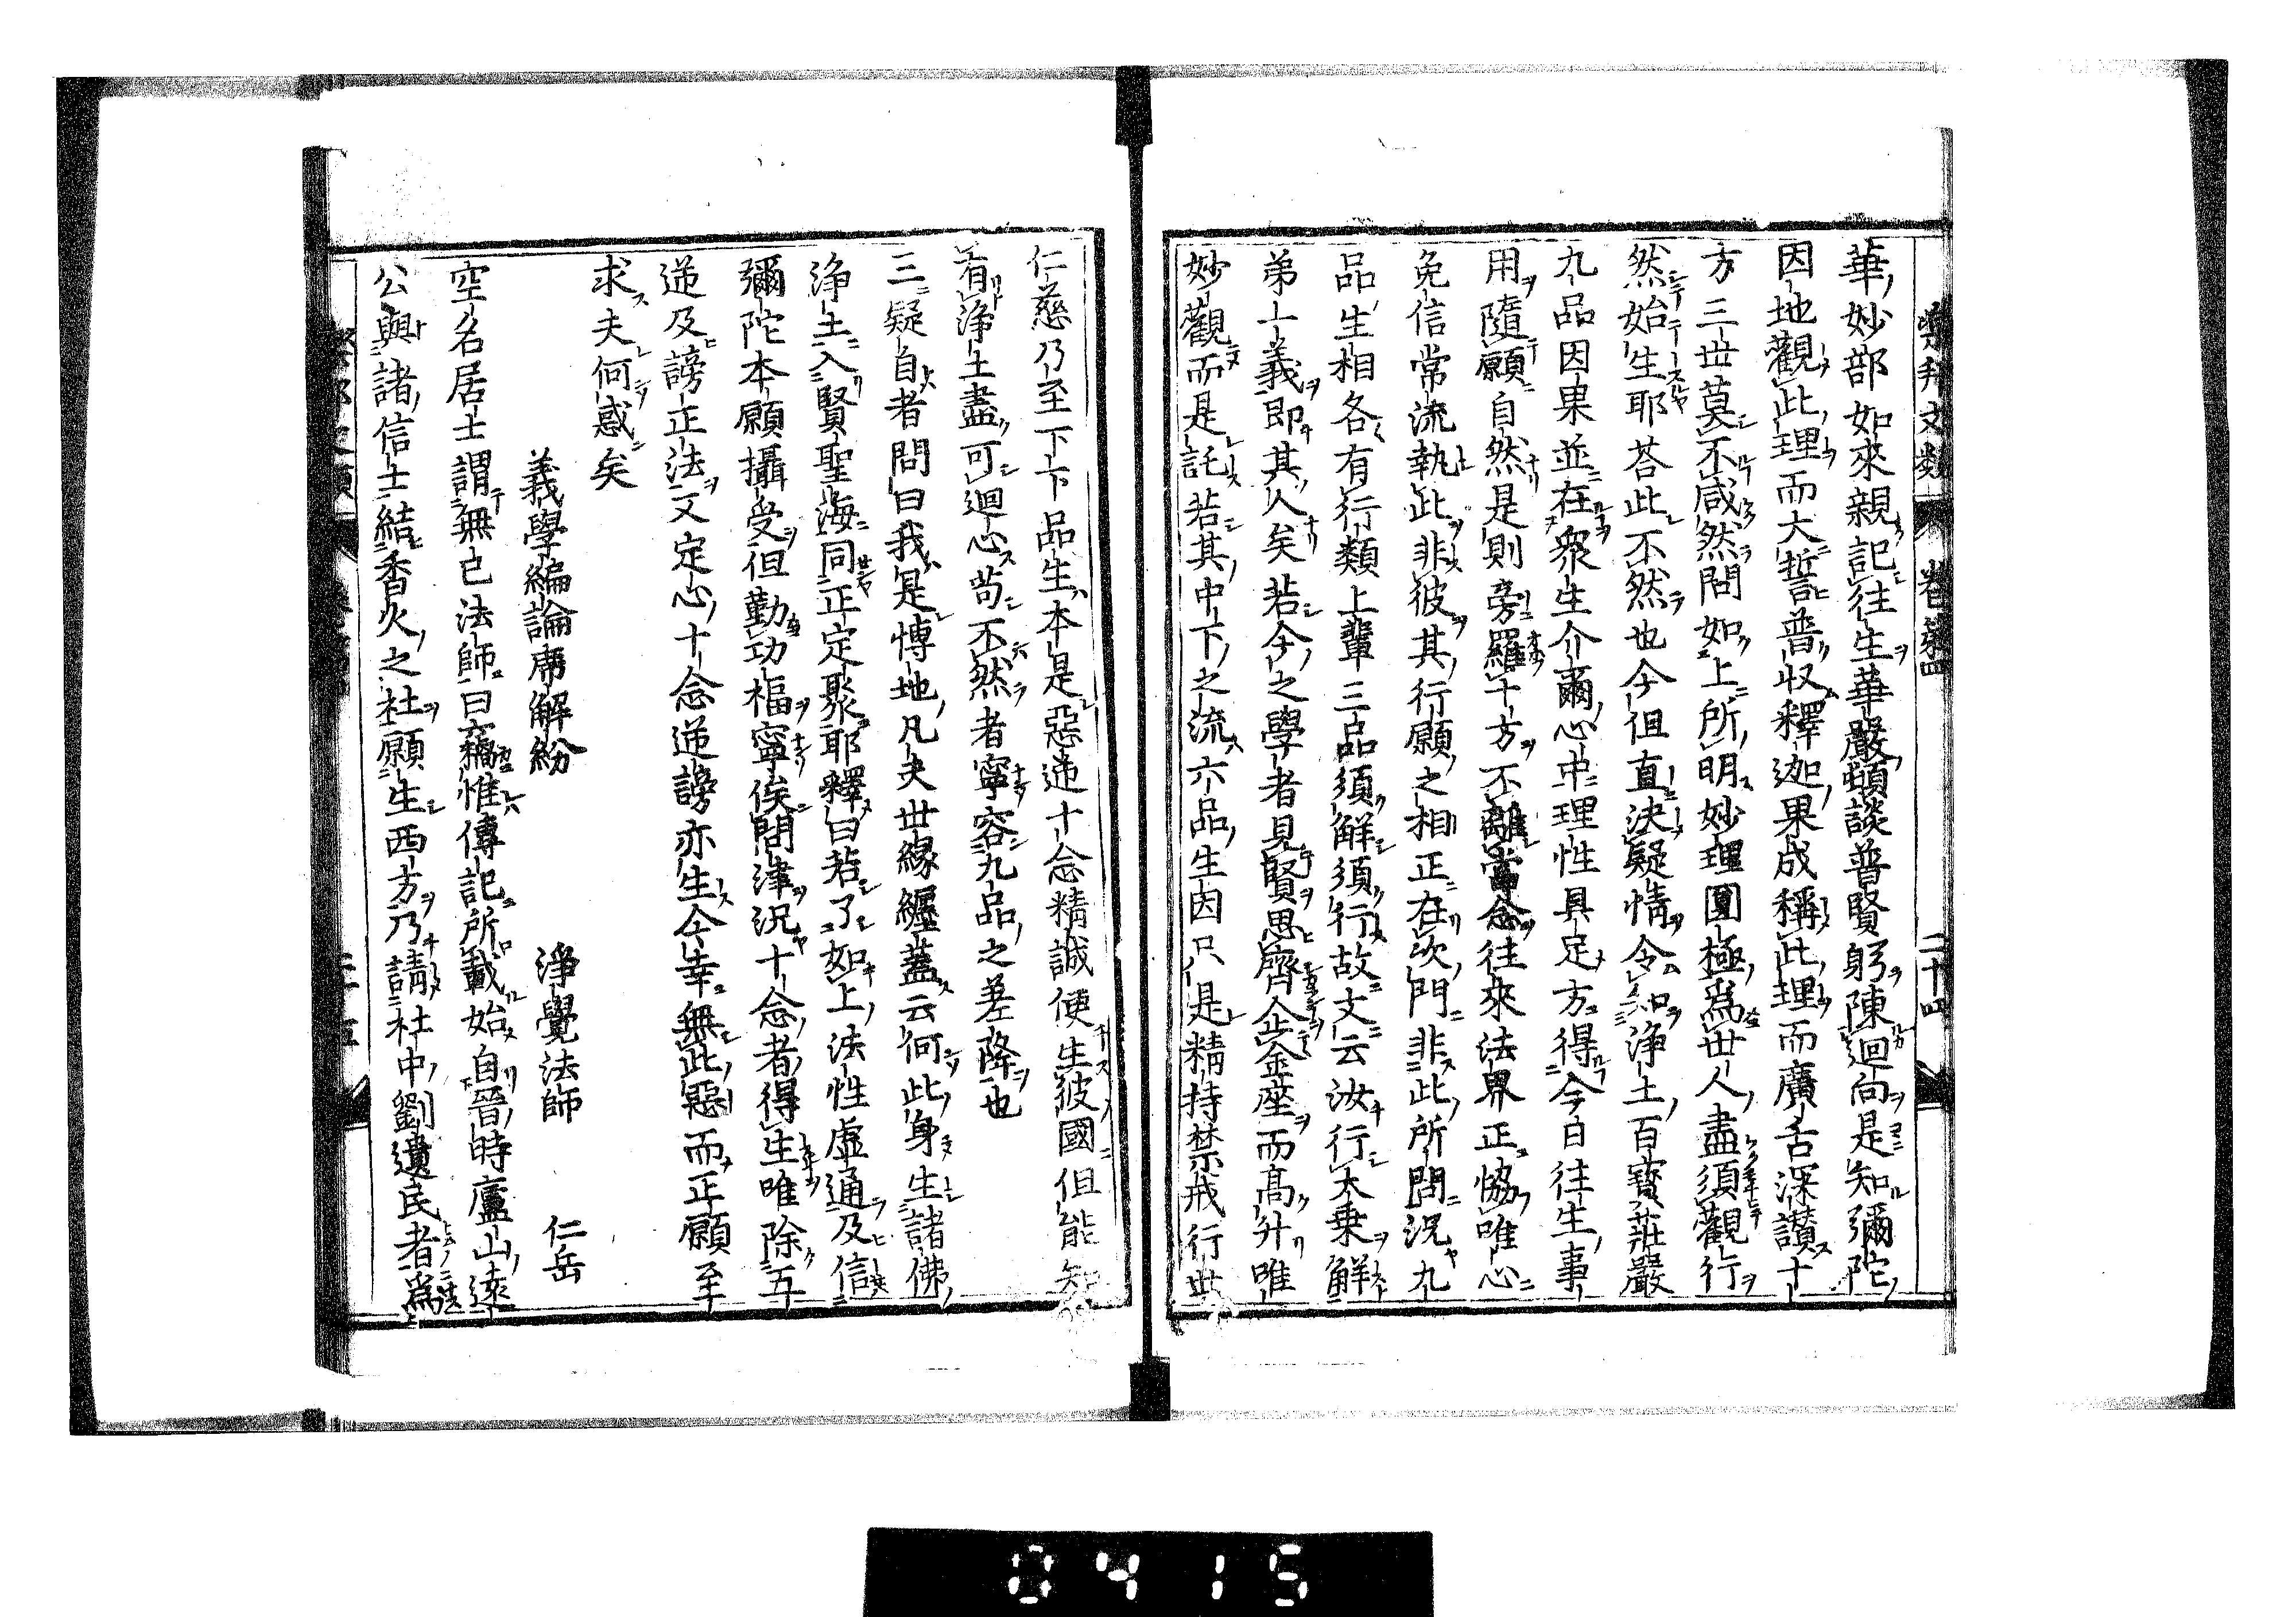 樂邦文類 卷第四 二十四
華妙部如來親記往生華嚴頓談普賢躬陳迴向是知彌陀
因地觀此理而大誓普收釋迦果成稱此理而廣舌深讃十
方三世莫不咸然問如上所明妙理圓極爲世人盡須觀行
然始生耶荅此不然也今但直決疑情令知淨土百寶莊嚴
九品因果並在衆生介爾心中理性具足方得今日往生事
用隨願自然是則旁羅十方不離當念往來法界正恊唯心
免信常流執此非彼其行願之相正在次門非此所問況九
品生相各有行類上輩三品須解須行故文云汝行大乗解
苐一義即其人矣若今之學者見賢思齊企金座而高升唯
妙觀而是託若其中下之流六品生因只是精持禁戒行世
仁慈乃至下下品生本是惡逆十念精誠便生彼國但能知
有浄土盡可迴心苟不然者寧容九品之差降也
三疑自者問曰我是慱地凡夫世縁纒蓋云何此身生諸佛
浄土入賢聖海同正定聚耶釋曰若了如上法性虛通及信
彌陀本願攝受但勤功福寧俟問津況十念者得生唯除五
逆及謗正法又定心十念逆謗亦生今幸無此惡而正願至
求夫何惑矣
義學編論席解紛 淨覺法師 仁岳
空名居士謂無已法師曰竊惟傳記所載始自晉時廬山遠
公與諸信士結香火之社願生西方乃請社中劉遺民者爲